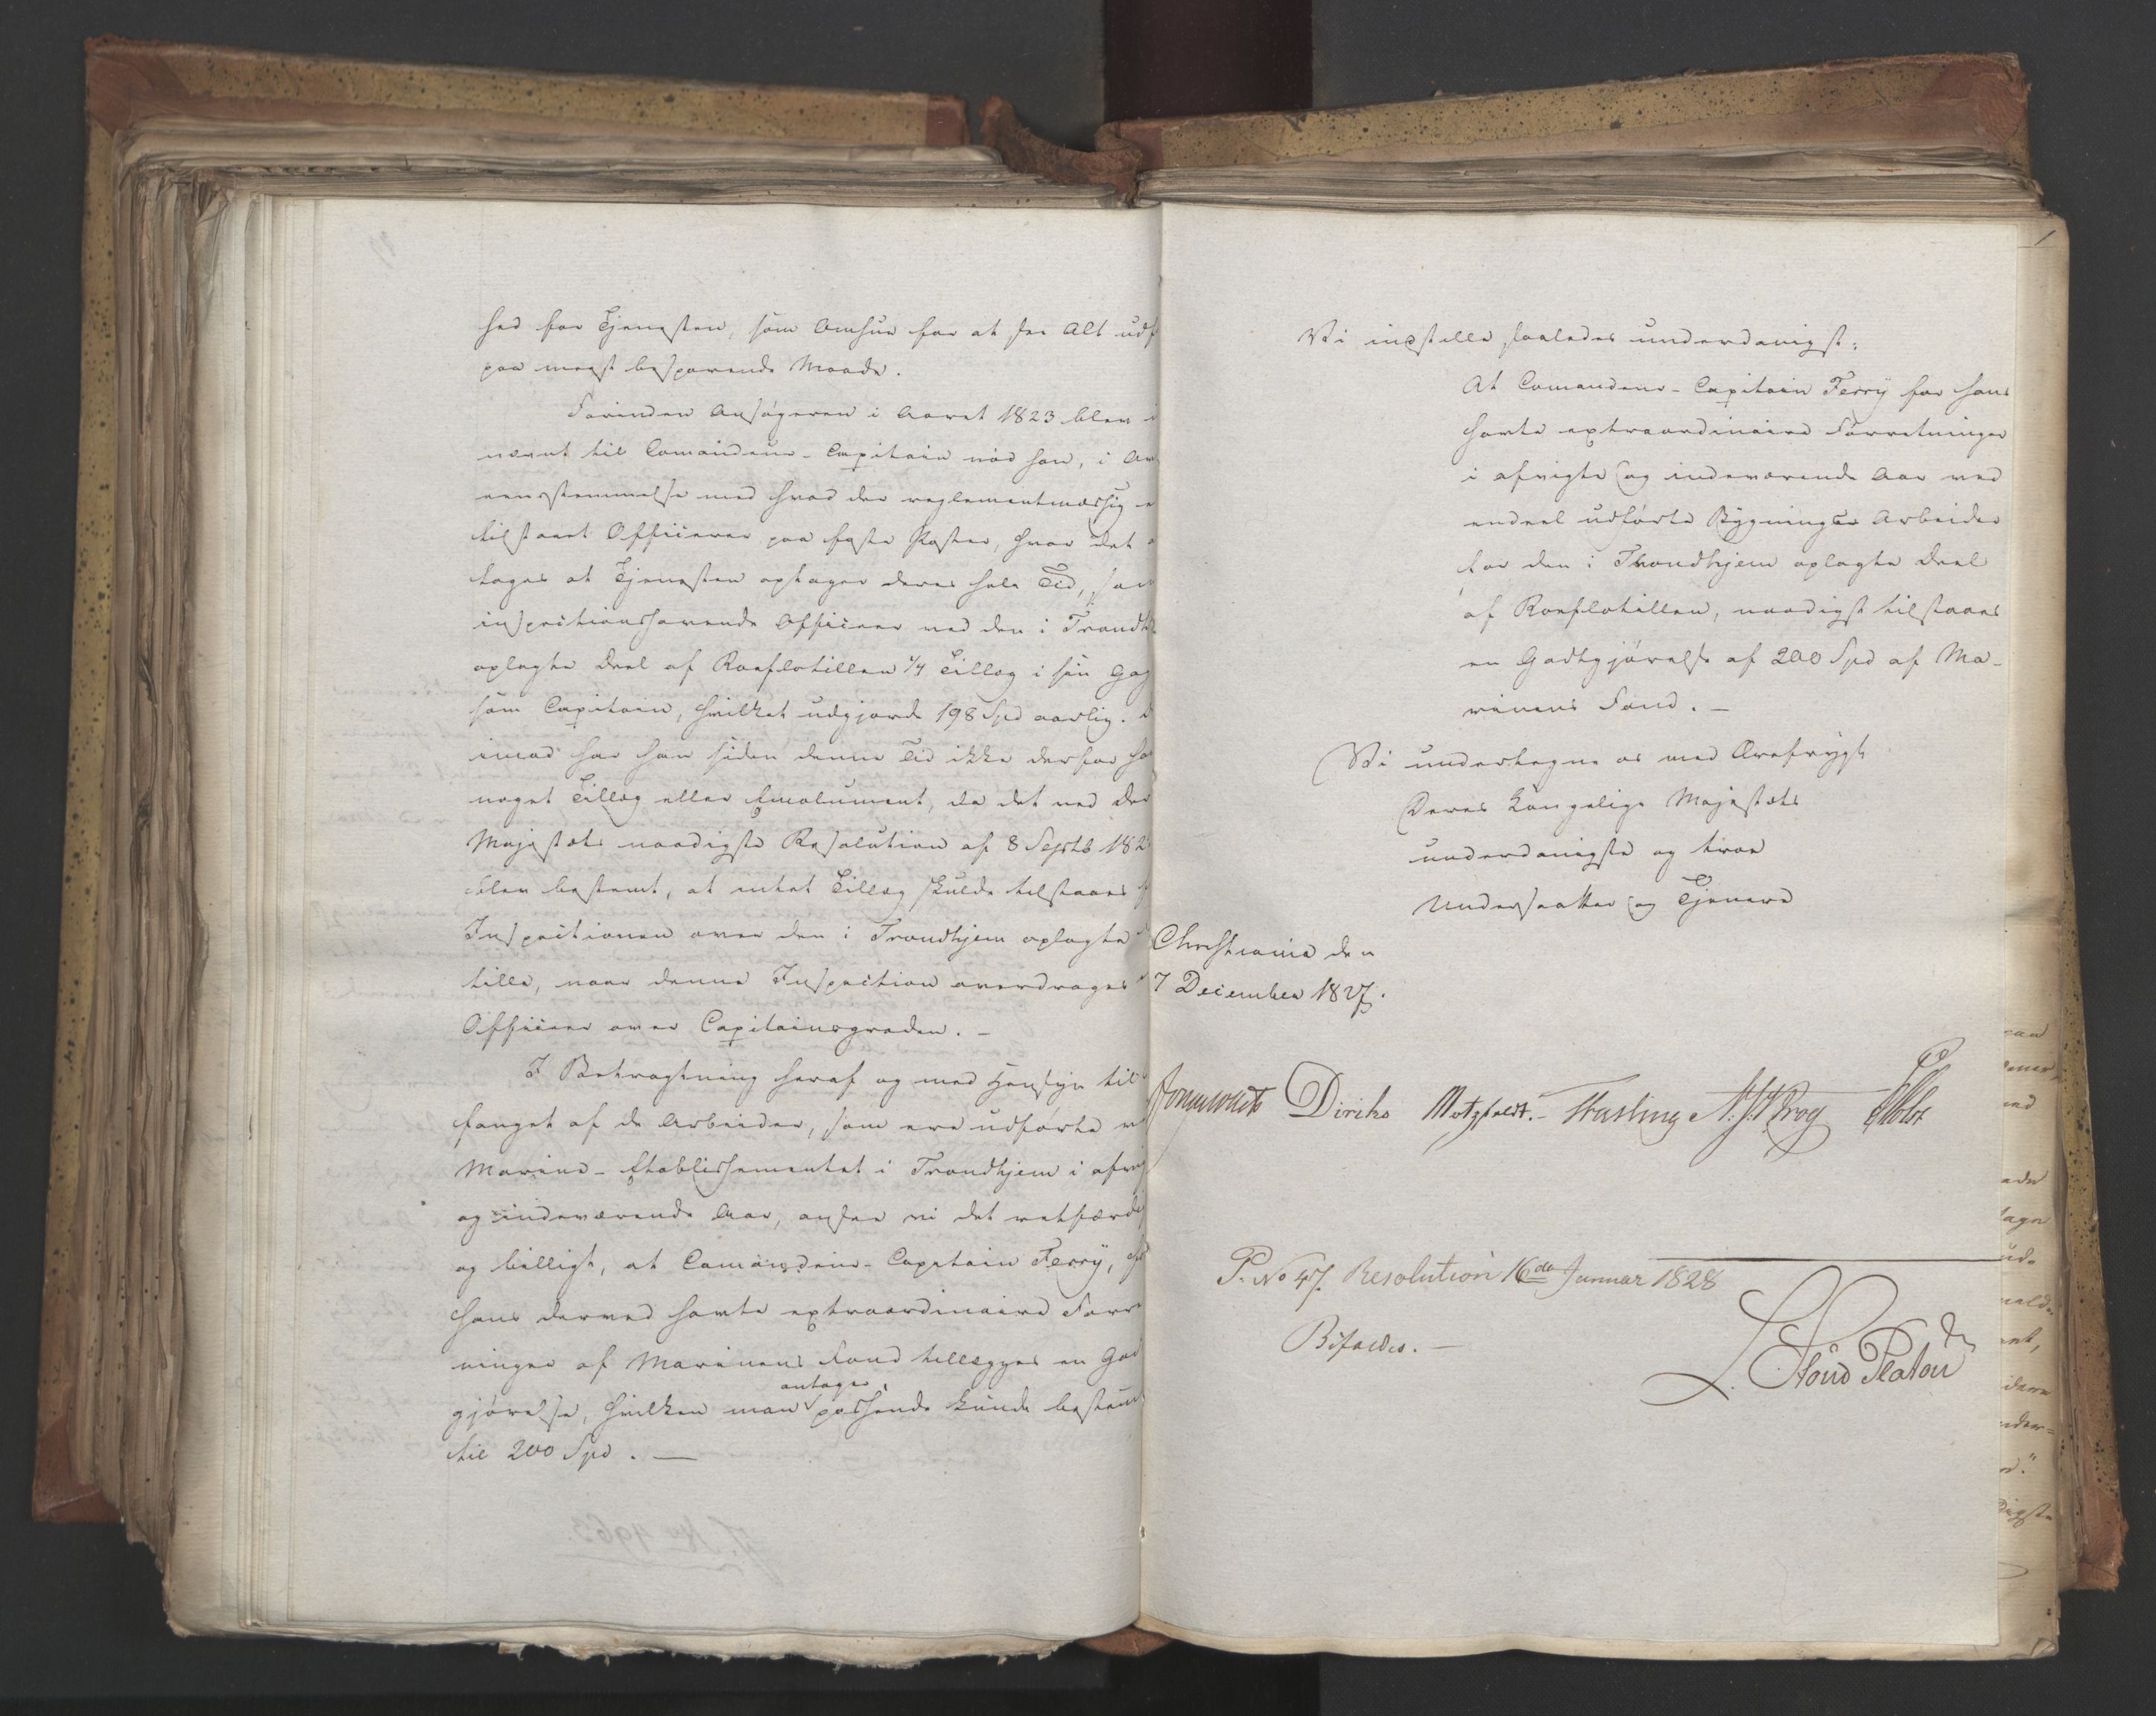 hed for Tjenesten, som Omhue for at see Alt udf
paa meest besparende Maade.
Forinden Ansøgeren i Aaret 1823 blev
nævnt til Comandeur-Capitain nød han, i
eensstemmelse med hvad der reglementmæssig
tilstaaet Officierer paa faste Poster, hvor det
tages at Tjenesten optager deres hele Tid, som
inspectionshavende Officier ved den i Trondh
oplagte Deel af Roeflotillen 1/4 Tillæg i sin Gag
som Capitain, hvilket udgjorde 198 Spd aarlig.
imod har han siden denne Tid ikke derfor ha
noget Tillæg eller Emolument, da det ved Der
Majestæts naadigste Resolution af 8 Septb 182
blev bestemt, at intet Tillæg skulde tilstaaes
Inspectionen over den i Trondhjem oplagte
tille, naar denne Inspection overdrages
Officier over Capitainsgraden. -
I Betragtning heraf og med Hensyn til
fanget af de Arbeider, som ere udførte
Marine-Etablissementet i Trondhjem i afvig
og indeværende Aar, ansee vi det retfærdi
og billigt, at Comandeur-Capitain Ferrÿ,
hans derved havte extraordinaire Forr
ninger af Marinens Fond tillægges en God
antager,
gjørelse, hvilken man passende kunde bestem
til 200 Spd. —
Vi indstille saaledes underdanigst:
At Comandeur-Capitain Ferrÿ for hans
havte extraordinaire Forretninger
i afvigte og indeværende Aar ved
endeel udførte Bygnings Arbeider
for den i Trondhjem oplagte Deel
af Roeflotillen, naadigst tilstaaes
en Godtgjørelse af 200 Spd af Ma-
rinens Fond. -
Vi undertegne os med Ærefrygt
Deres Kongelige Majestæts
underdanigste og troe
Undersaatter og Tjenere
Christiania den
7 December 1827.
Diriks Motzfeldt. Fasting Krog Holst
P. No 47. Resolution 16de Januar 1828
Bifaldes. -
Platou